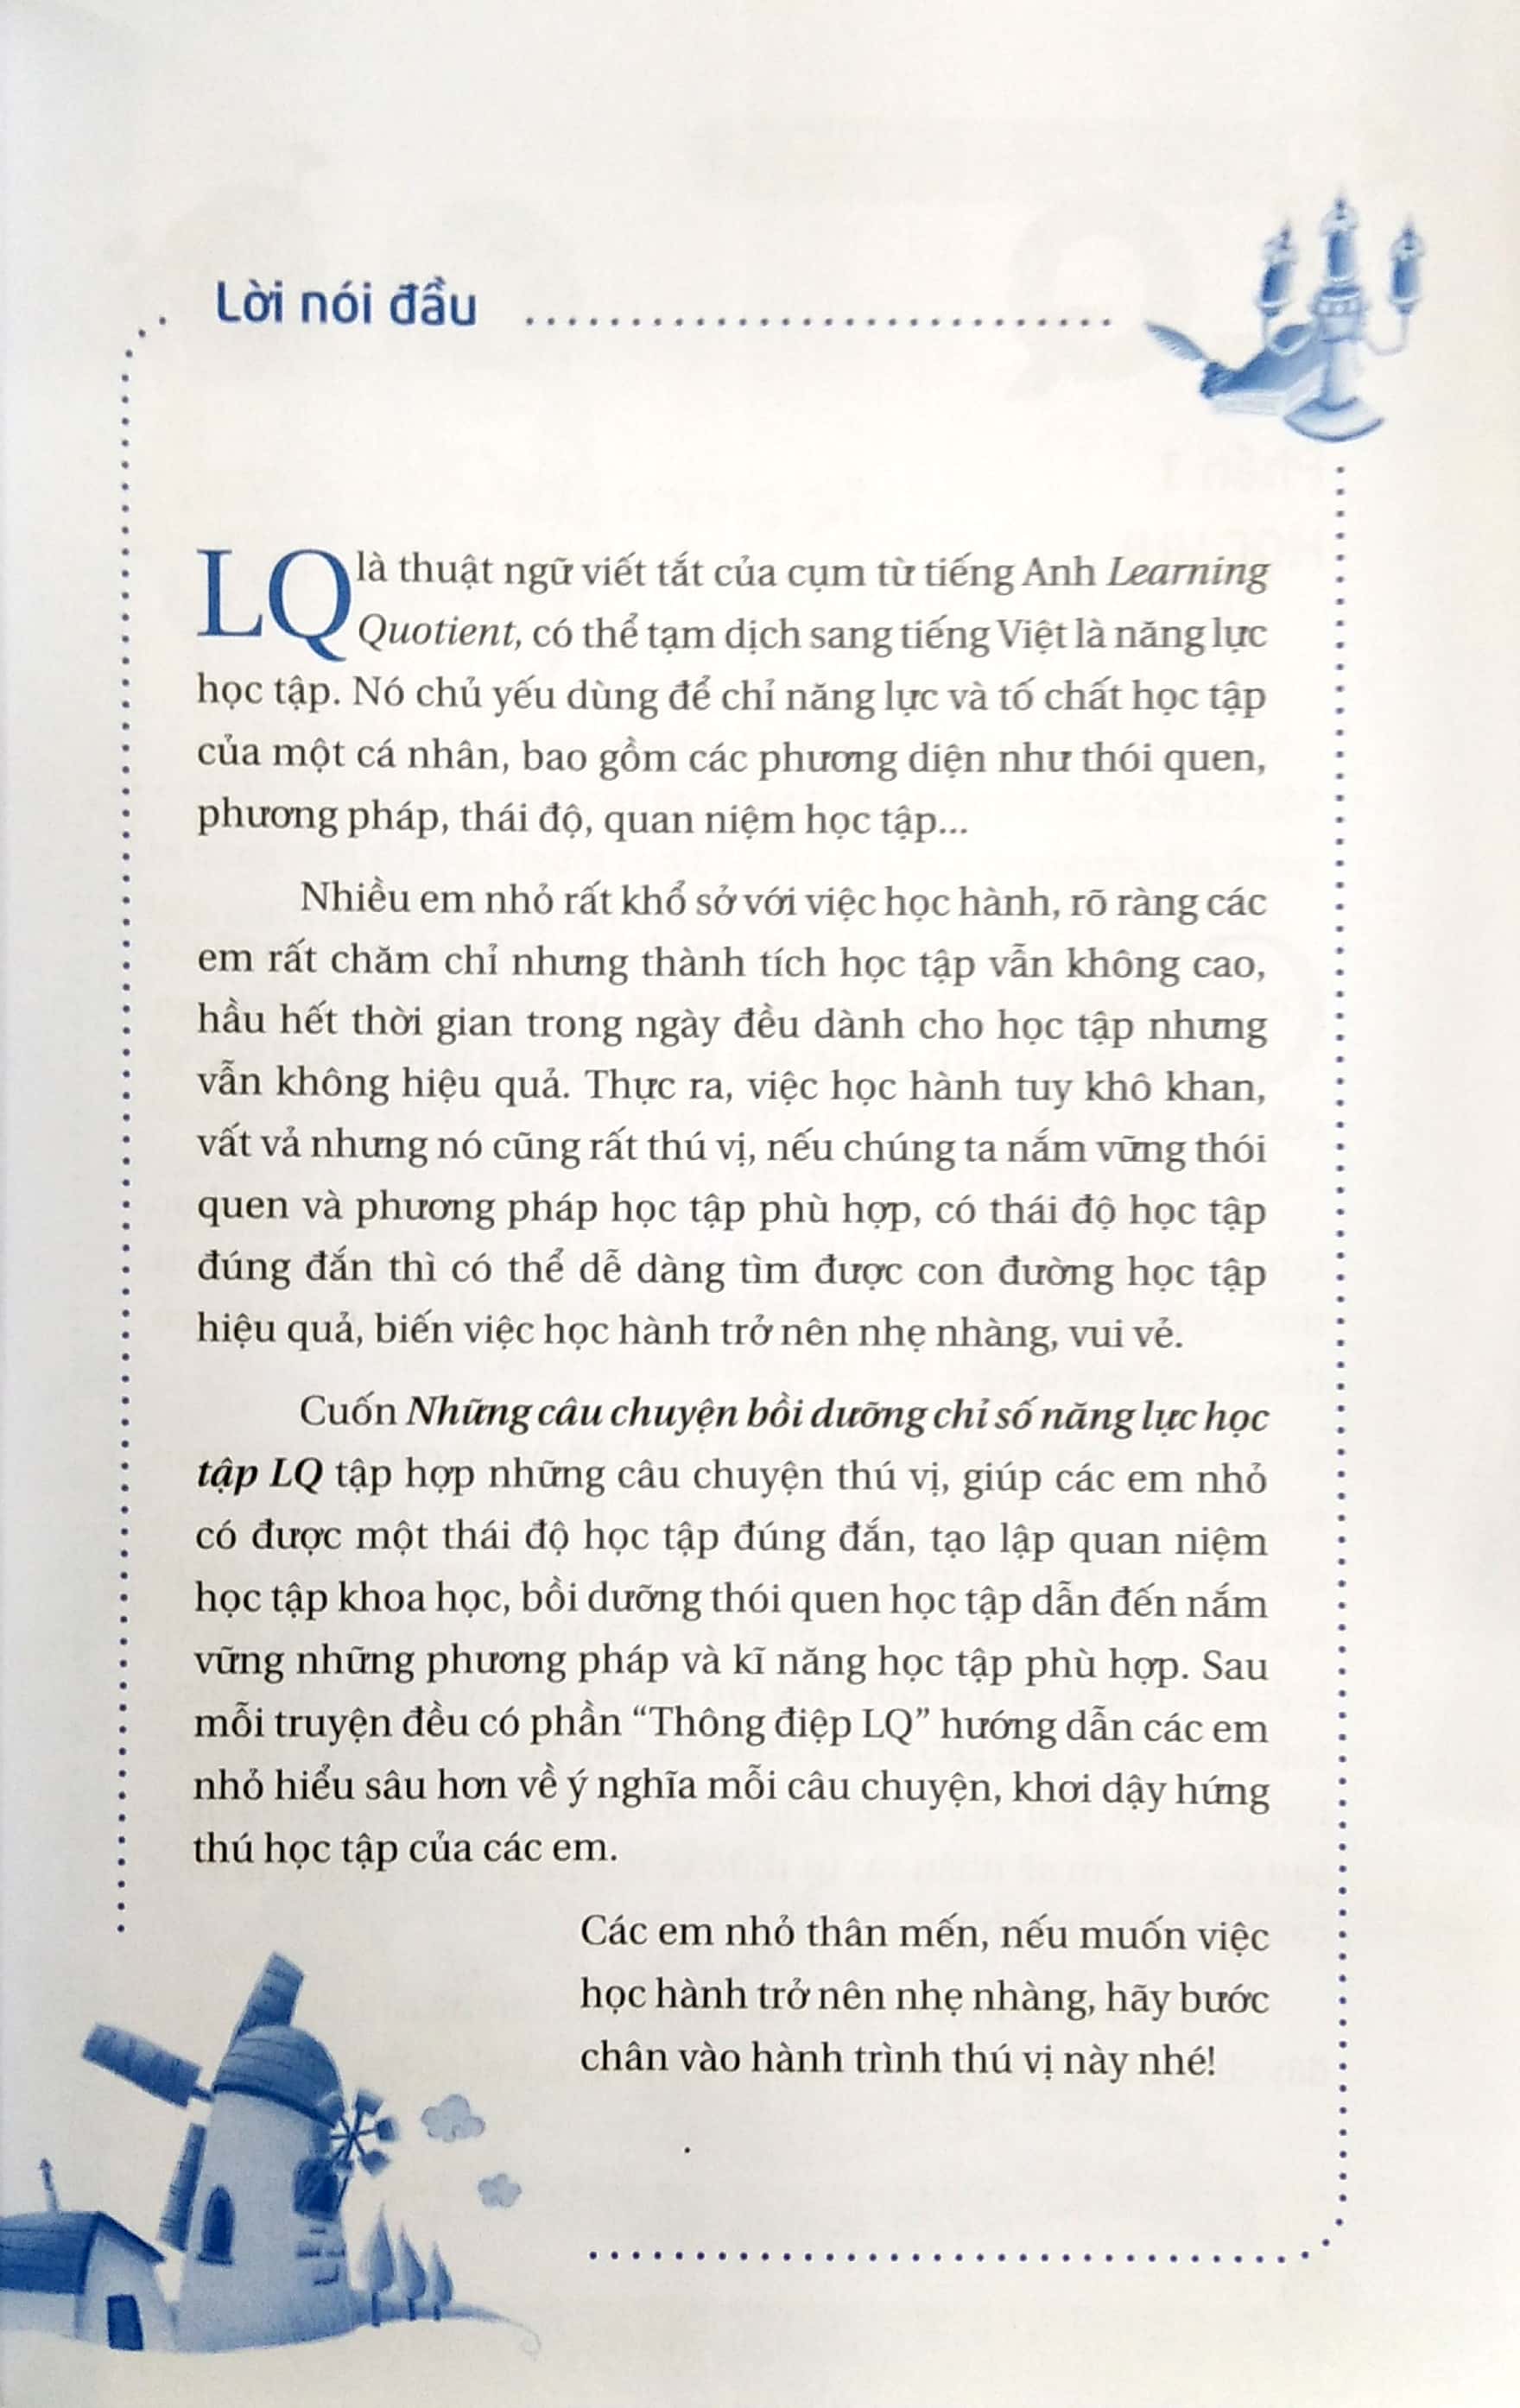 Lời nói đầu
LQ là thuật ngữ viết tắt của cụm từ tiếng Anh Learning
Quotient, có thể tạm dịch sang tiếng Việt là năng lực
học tập. Nó chủ yếu dùng để chỉ năng lực và tố chất học tập
của một cá nhân, bao gồm các phương diện như thói quen,
phương pháp, thái độ, quan niệm học tập...
Nhiều em nhỏ rất khổ sở với việc học hành, rõ ràng các
em rất chăm chỉ nhưng thành tích học tập vẫn không cao,
hầu hết thời gian trong ngày đều dành cho học tập nhưng
vẫn không hiệu quả. Thực ra, việc học hành tuy khô khan,
vất vả nhưng nó cũng rất thú vị, nếu chúng ta nắm vững thói
quen và phương pháp học tập phù hợp, có thái độ học tập
đúng đắn thì có thể dễ dàng tìm được con đường học tập
hiệu quả, biến việc học hành trở nên nhẹ nhàng, vui vẻ.
Cuốn Những câu chuyện bồi dưỡng chỉ số năng lực học
tập LQ tập hợp những câu chuyện thú vị, giúp các em nhỏ
có được một thái độ học tập đúng đắn, tạo lập quan niệm
học tập khoa học, bồi dưỡng thói quen học tập dẫn đến nắm
vững những phương pháp và kĩ năng học tập phù hợp. Sau
mỗi truyện đều có phần “Thông điệp LQ” hướng dẫn các em
nhỏ hiểu sâu hơn về ý nghĩa mỗi câu chuyện, khơi dậy hứng
thú học tập của các em.
Các em nhỏ thân mến, nếu muốn việc
học hành trở nên nhẹ nhàng, hãy bước
chân vào hành trình thú vị này nhé!